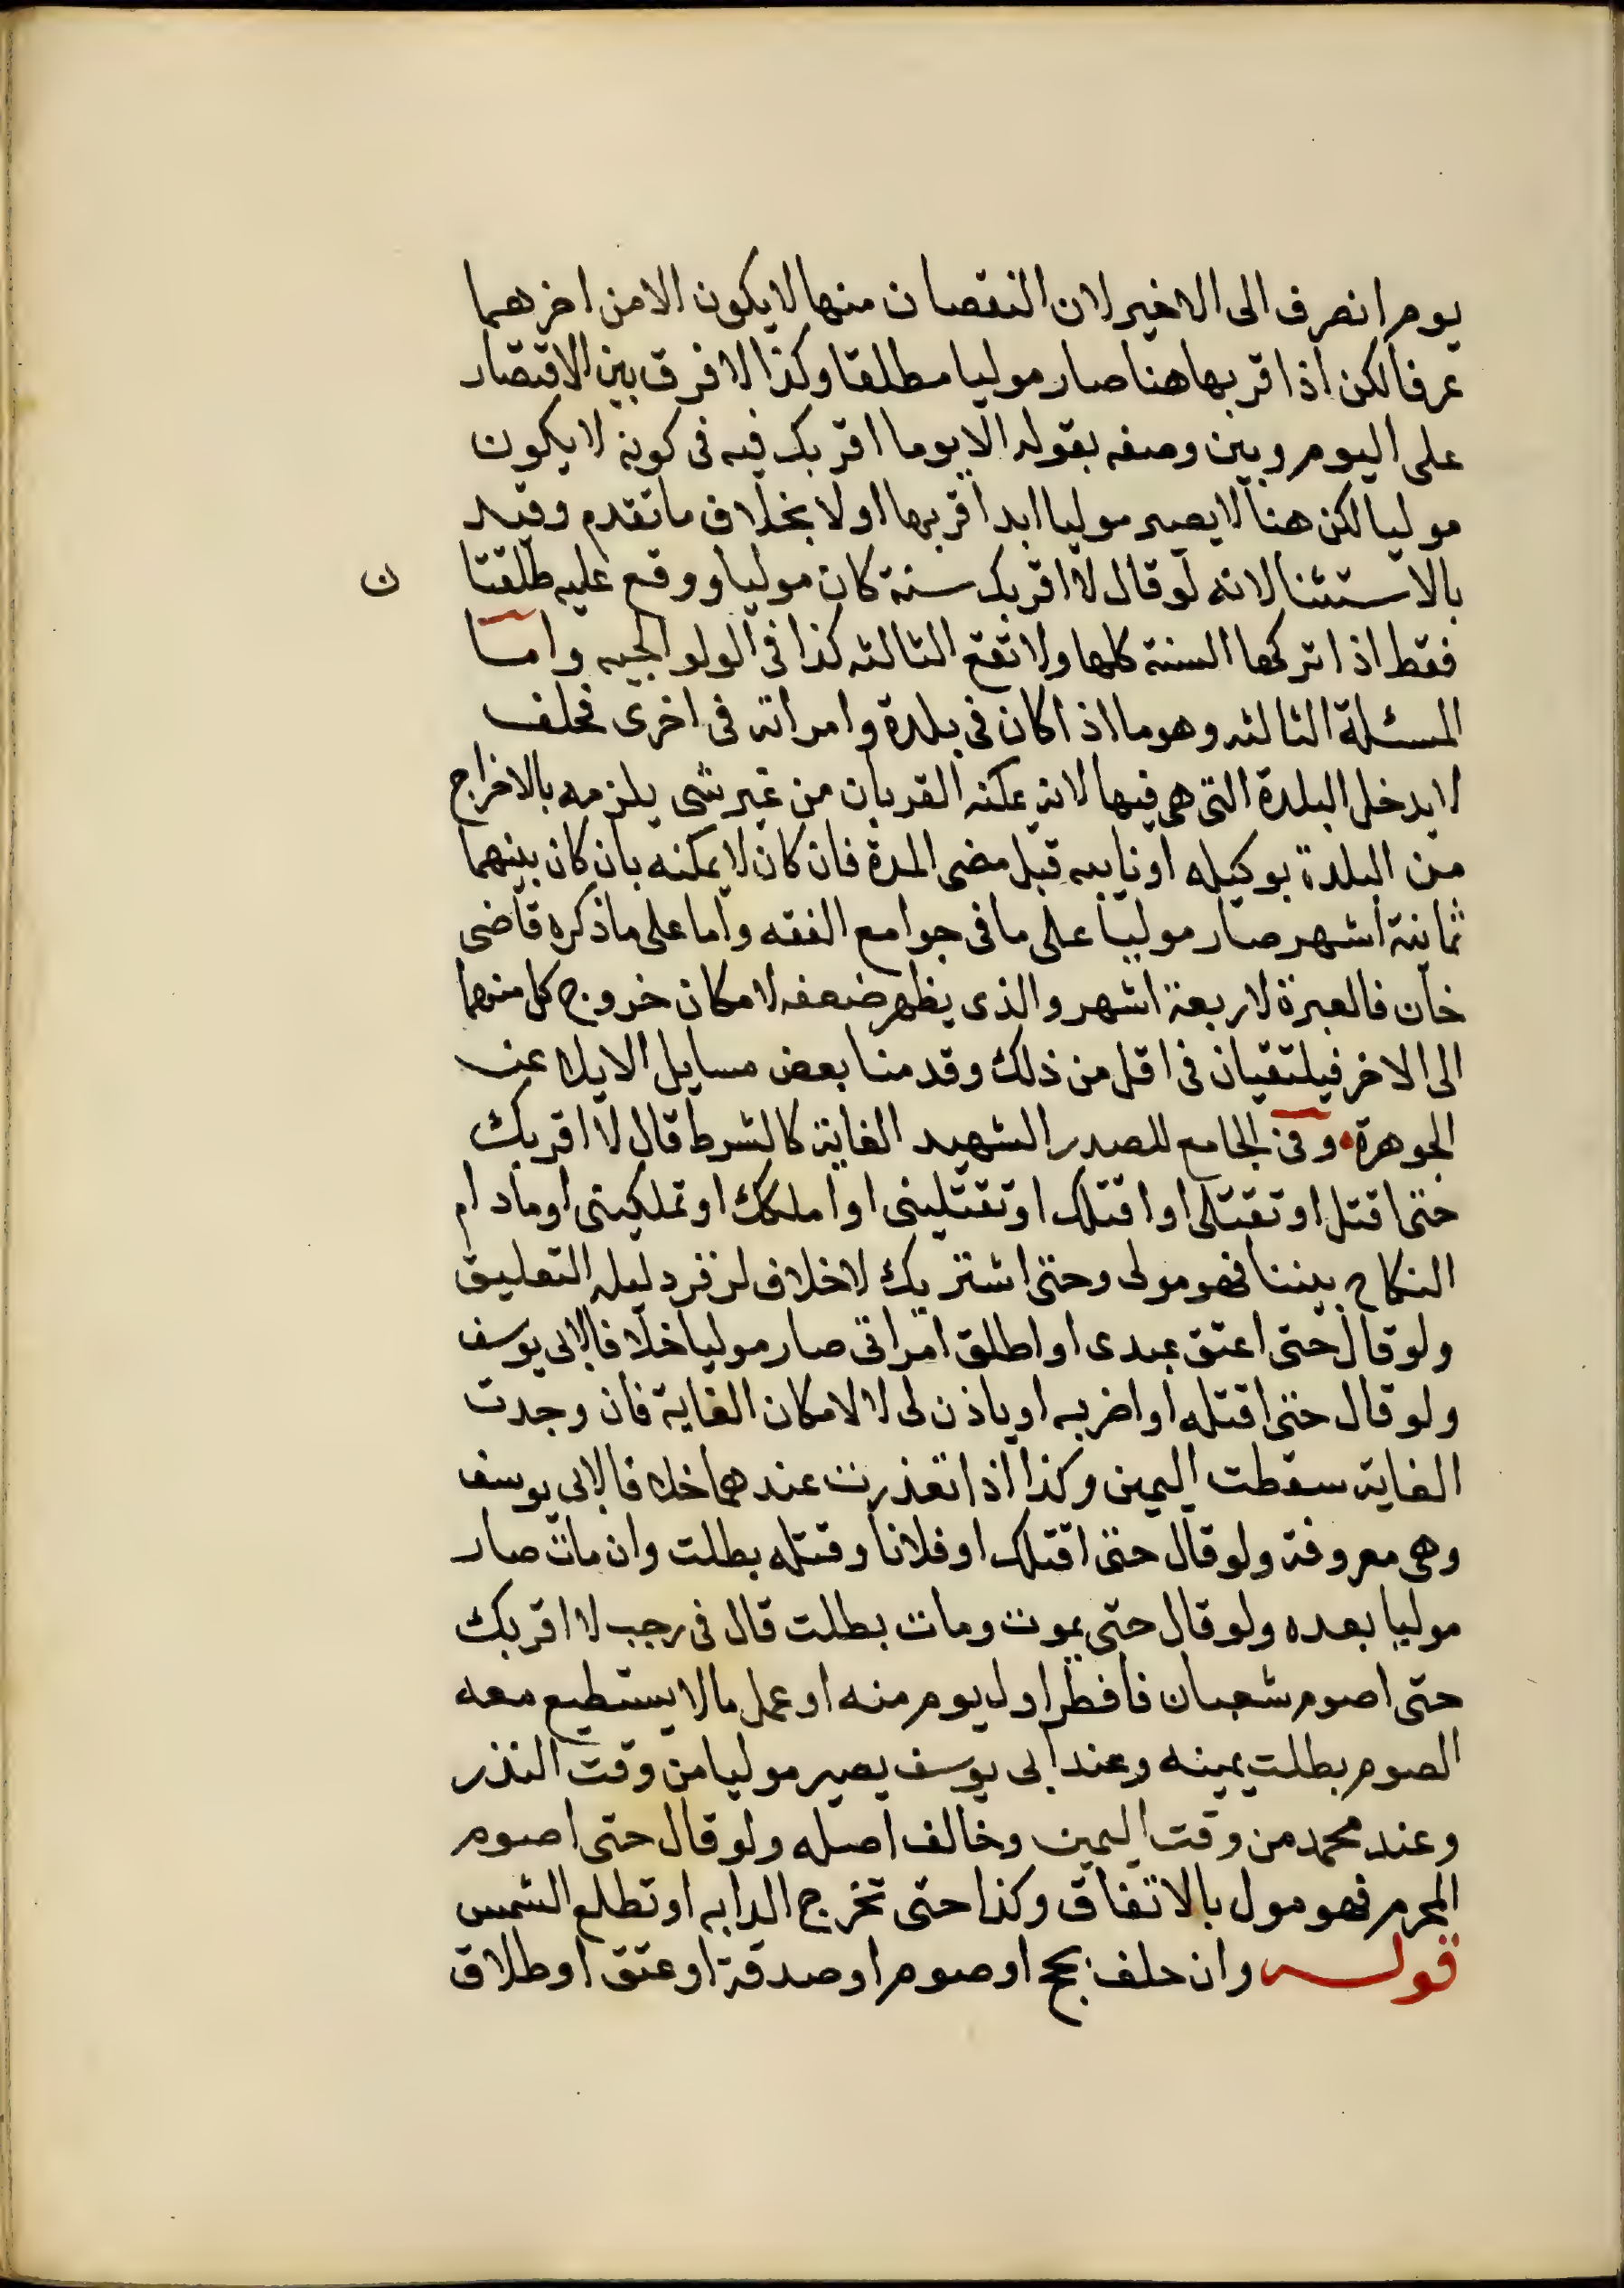 يوم انصرف الى الاخير لان النقصان منها لا يكون الا من اخرهما
عرفا لكن اذا قربها هنا صار موليا مطلقا وكذا لا فرق بين الاقتصار
على اليوم وبين وصفه بقوله الا يوما اقربك فيه فى كونه لا يكون
موليا لكن هنا لا يصير موليا ابدا قربها اولا بخلاف ما تقدم وقيد
بالاستثنا لانه لو قال لا اقربك سنة كان موليا ووقع عليه طلقتا ن
فقط اذا تركها السنة كلها ولا تقع الثالثه كذا فى الولوالجيه واما
المسئلة الثالثه وهو ما اذا كان فى بلدة وامراته فى اخرى فحلف
لا يدخل البلدة التى هى فيها لانه يمكنه القربان من غير شى يلزمه بالاخراج
من البلدة بوكيله او نايبه قبل مضى المدة فان كان لا يمكنه بان كان بينهما
ثمانية اشهر صار موليا على ما فى جوامع الفقه واما على ما ذكره قاضى
خان فالعبرة لاربعة اشهر والذى يظهر ضعفه لامكان خروج كل منهما
الى الاخر فيلتقيان فى اقل من ذلك وقدمنا بعض مسايل الايلا عن
الجوهرة وفى الجامع للصدر الشهيد الغاية كالشرط قال لا اقربك
حتى اقتل او تقتلى او اقتلك او تقتلينى او املكك او تملكينى او مادام
النكاح بيننا فهو مولى وحتى اشتريك لا خلاف لزفر دليله التعليق
ولو قال حتى اعتق عبدى او اطلق امراتى صار موليا خلافا لابى يوسف
ولو قال حتى اقتله او اضربه او ياذن لى لا لامكان الغاية فان وجدت
الغاية سقطت اليمين وكذا اذا تعذرت عندهما خلافا لابى يوسف
وهى معروفة ولو قال حتى اقتلك او فلانا وقتله بطلت وان مات صار
موليا بعده ولو قال حتى يموت ومات بطلت قال فى رجب لا اقربك
حتى اصوم شعبان فافطر اول يوم منه او عمل ما لا يستطيع معه
الصوم بطلت يمينه وعند ابى يوسف يصير موليا من وقت النذر
وعند محمد من وقت اليمين وخالف اصله ولو قال حتى اصوم
المحرم فهو مول بالاتفاق وكذا حتى تخرج الدابه او تطلع الشمس
قوله وان حلف بحج او صوم او صدقة او عتق او طلاق